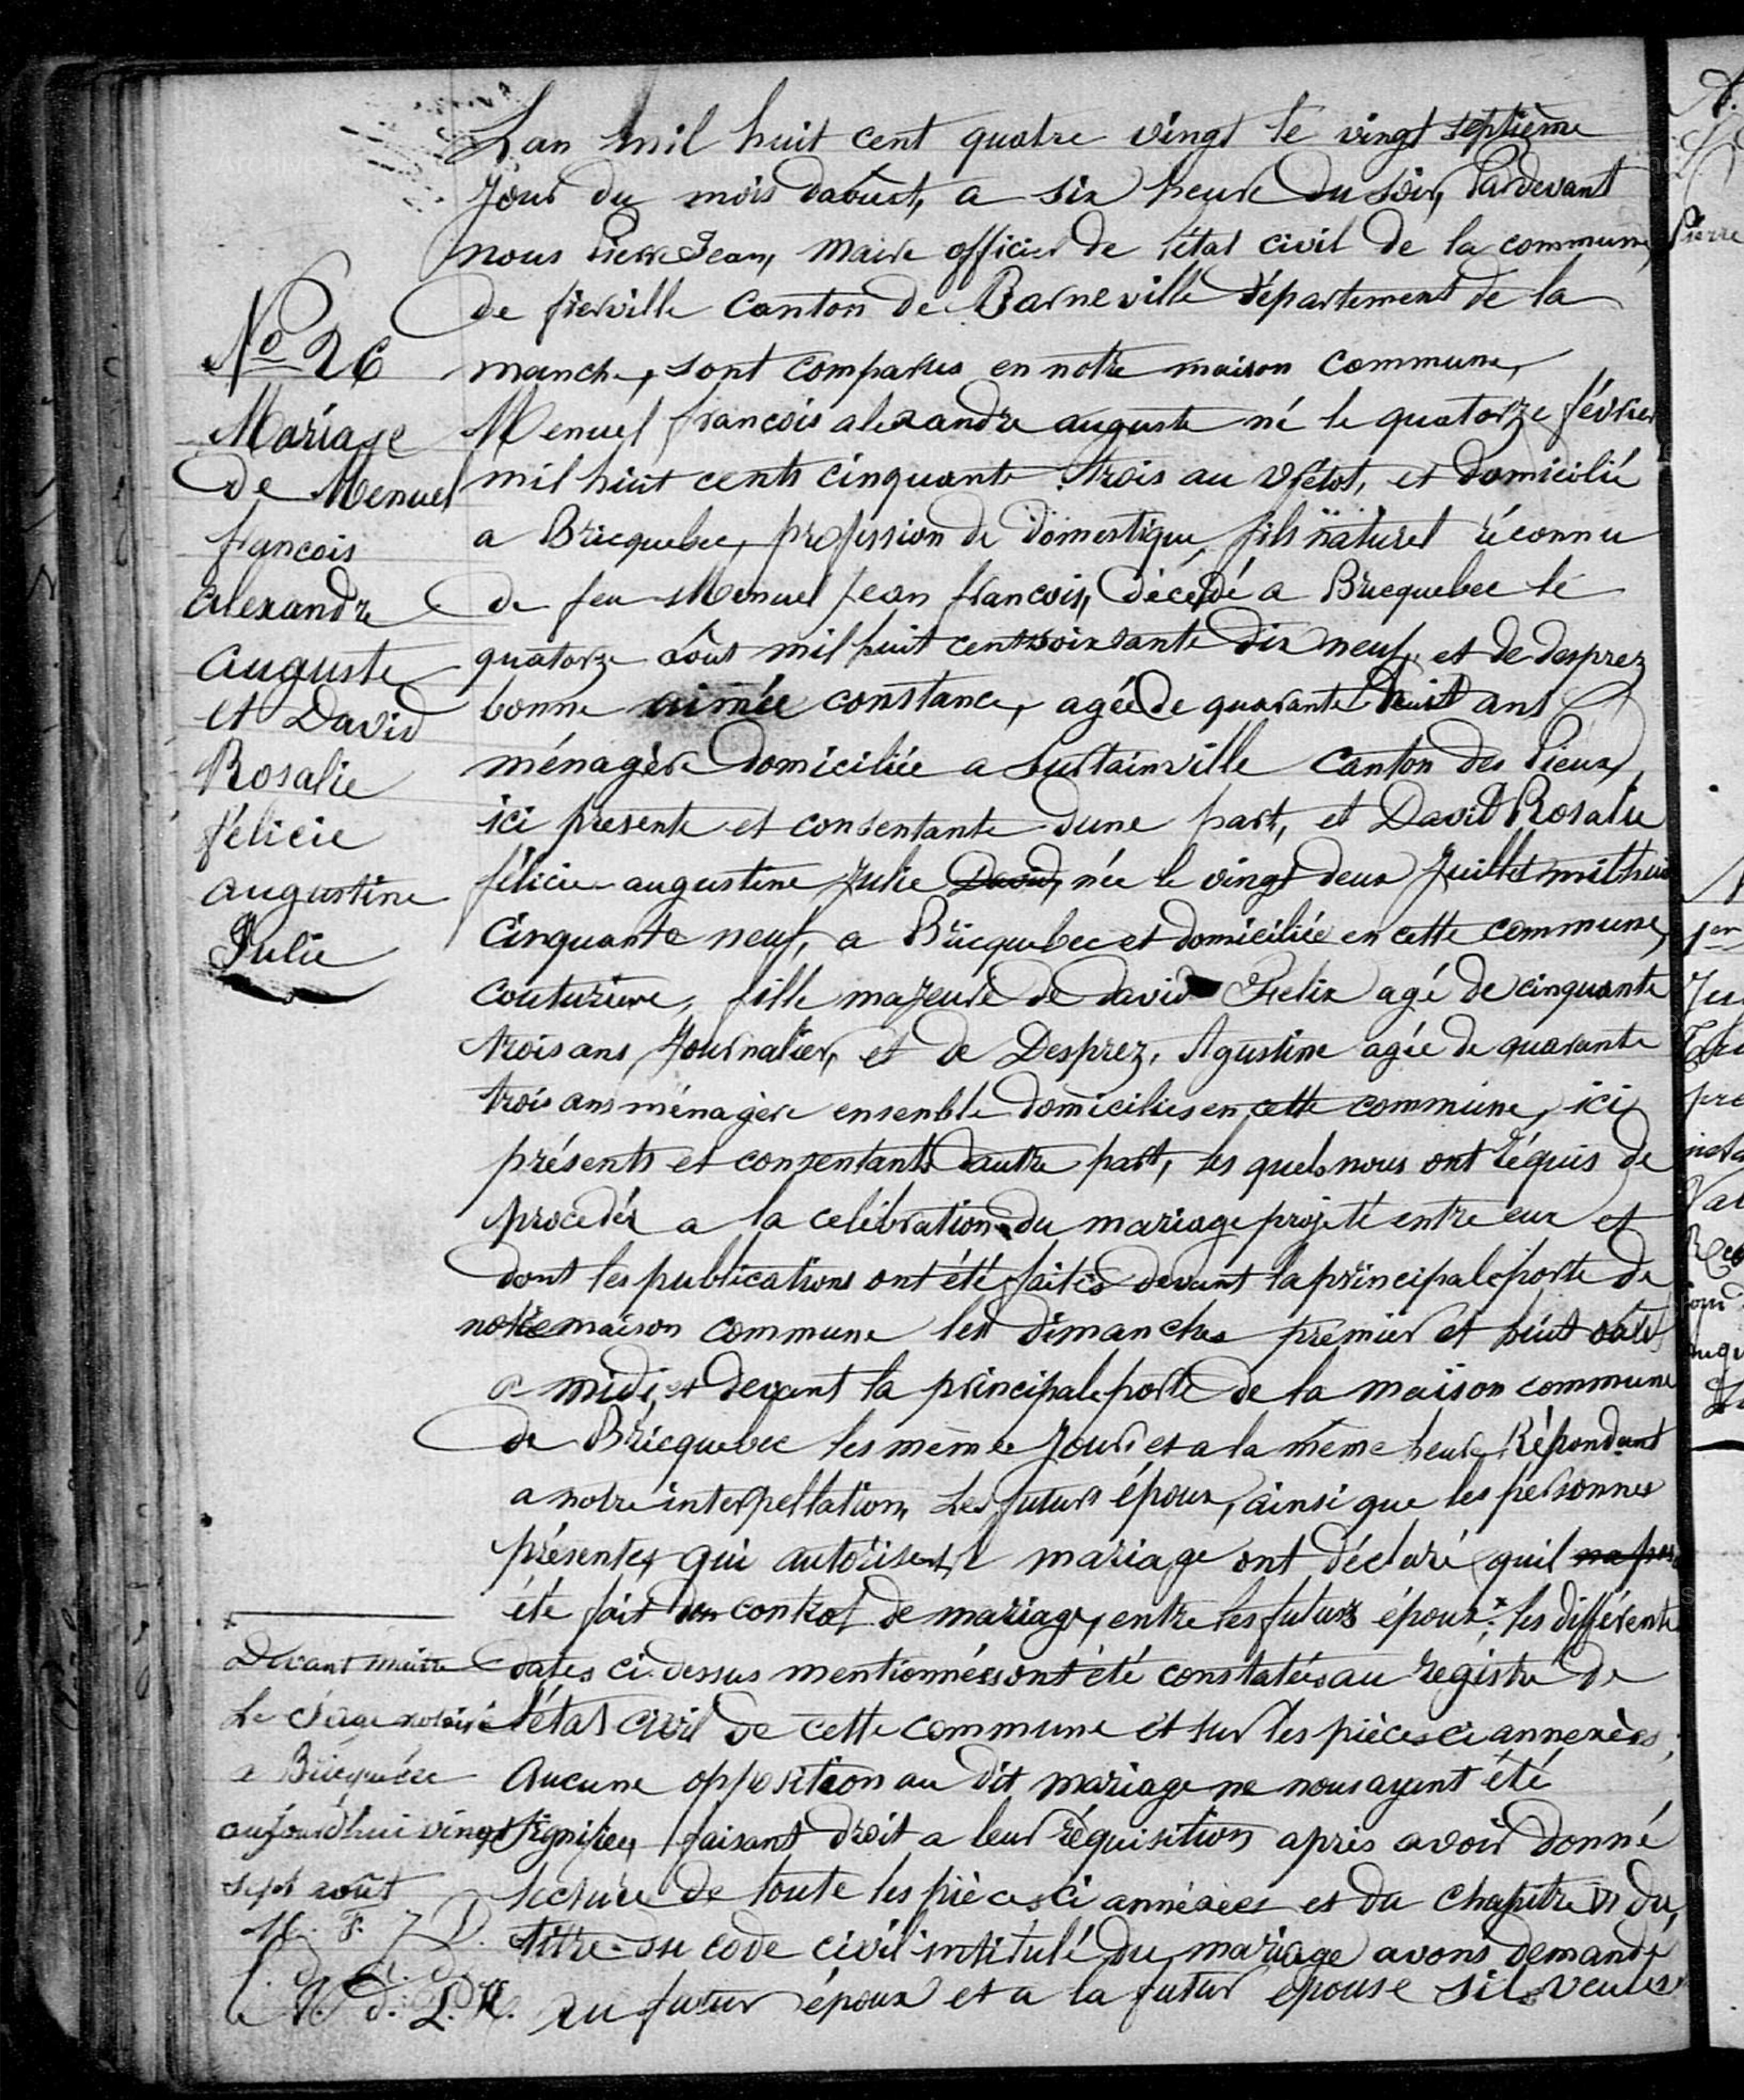 Lan mil huit cent quatre vingt le vingt septième
jour du mois daoust, a six heure du soir, Pardevant
nous Pierre Jean, Maire officier de létat civil de la commune
de fierville Canton de Barneville département de la
manche, sont comparus en notre maison commune,
Menuel francois alexandre auguste né le quatorze février
mil huit cents cinquante trois au Vrétot, et domicilié
a Bricquebec, profession de domestique fils naturel réconnu
de feu Menuel Jean francois, décédé a Bricquebec le
quatorze aôut mil huit cent soixsante dix neuf, et de desprez
bonne aimée constance, agée de quarante huit ans
ménagère domiciliée a Surtainville Canton des Pieux,
ici presente et consentante dune part, et David Rosalie
félicie augustine Julie David, née le vingt deux Juillet mil huit
Cinquante neuf, a Bricquebec et domiciliée en cette commune,
couturiere, fille majeure de david Felix agé de cinquante
trois ans Journalier, et de Desprez, Agustine agée de quarante
trois ans ménagère ensenble domiciliés en cette commune, ici
présents et consentants dautre part, les quels nous ont réquis de
procedér a la celébration du mariage projeté entre eux et
dont les publications ont été faites devant la principale porte de
notre maison commune les dimanches premier et huit août
a midi, et devant la principale porte de la maison commune
de Bricquebec les même jours et a la même heure, Répondant
a notre interpellation, Les futurs époux, ainsi que les personnes
présentes qui autorisent le mariage ont déclaré quil na pas
été fait de contrat de mariage, entre les futurs époux × les différente
dates ci dessus mentionnées ont été constatées au registre de
l'état civil de cette commune et sur les pièces ci annexées,
Aucune opposition au dit mariage ne nous ayant été
signifiée, faisant droit a leur réquisition après avoir donné
lecture de toute les pièces ci annéxées et du chapitre VI du
titre du code civil intitulé du mariage avons demandé
au futur époux et a la futur épouse sils veulent
No 26
Mariage
de Menuel
francois
alexandre
auguste
et David
Rosalie
félicie
augustine
Julie
×
Devant maitre
Le notaire
a Bricquebec
aujourdhui vingt
sept août
M. F. J D.
f. d. a. d.
d. L. M.
Pierre